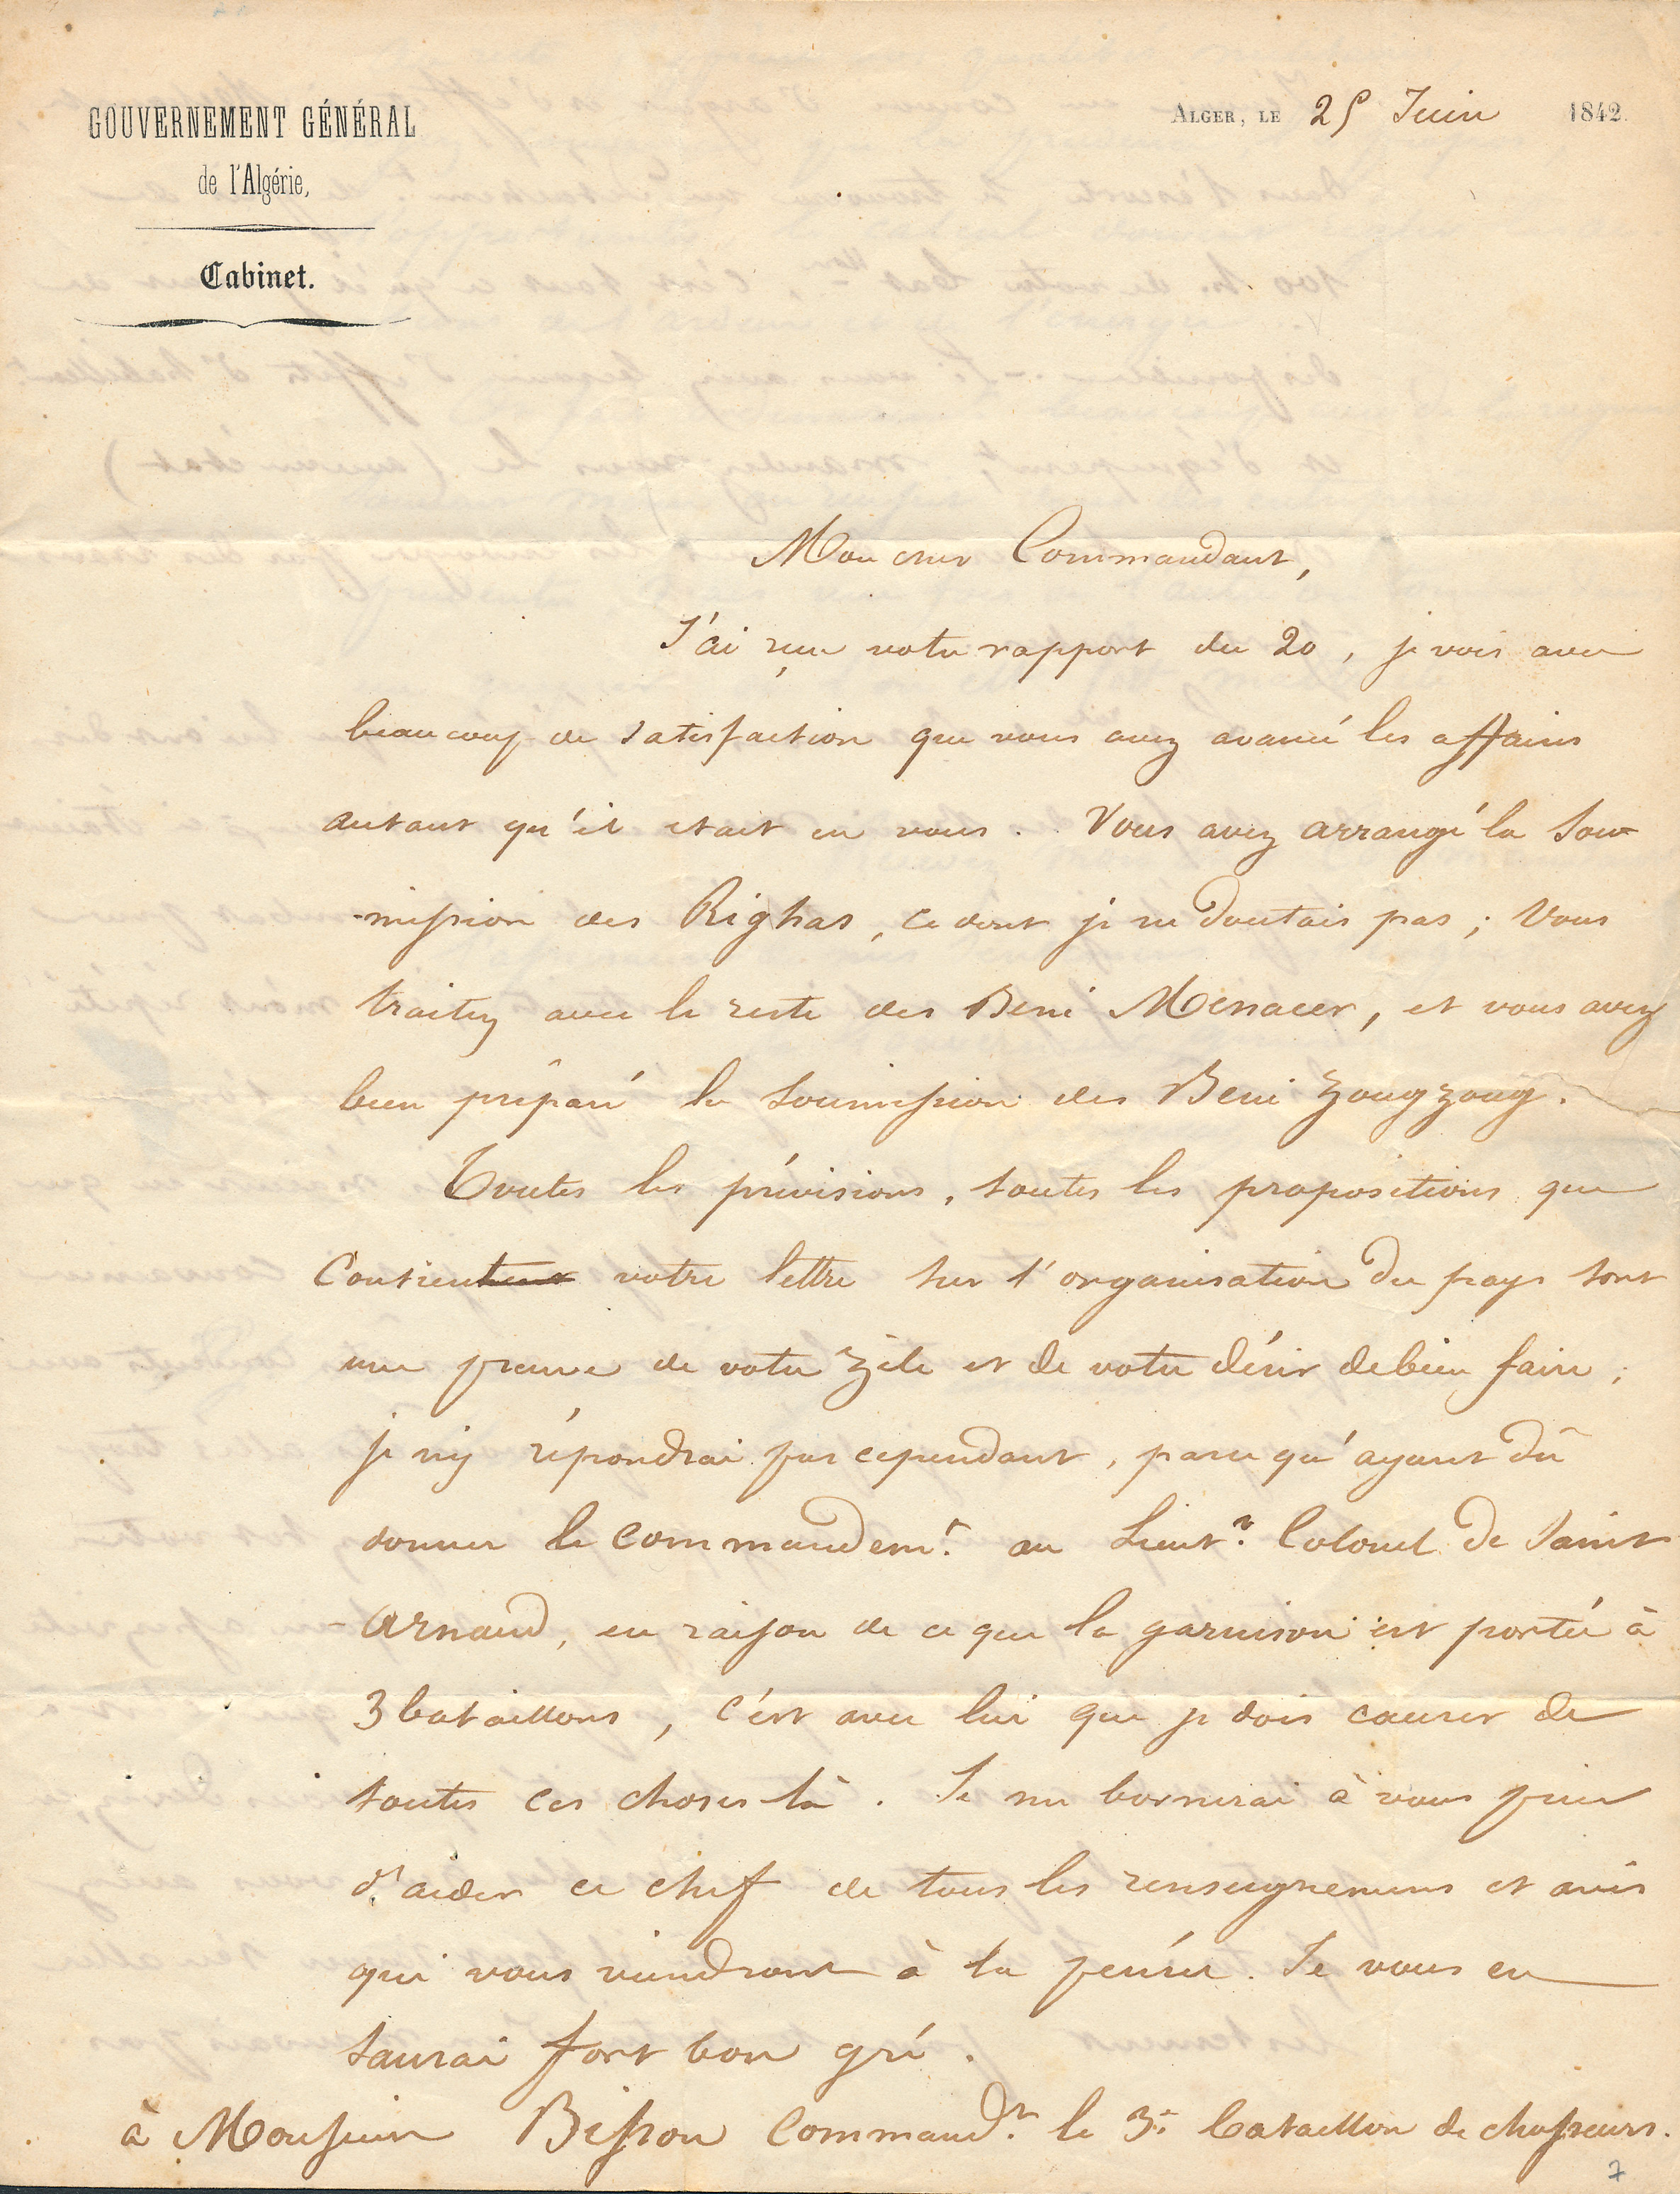 GOUVERNEMENT GÉNÉRAL
de l'Algérie,
Cabinet.
ALGER, LE 25 Juin 1842.
Mon cher Commandant,
J'ai reçu votre rapport du 20, je vois avec
beaucoup de satisfaction que vous avez avancé les affaires
autant qu'il etait en vous. Vous avez arrangé la sou-
-mission des Righas, ce dont je ne doutais pas; Vous
traitez avec le reste des Beni Menacer, et vous avez
bien préparé la soumission des Beni Zougzoug.
Toutes les prévisions, toutes les propositions que
Contient votre lettre sur l'organisation du pays sont
une preuve de votre zèle et de votre désir de bien faire;
je n'y répondrai pas cependant, parce qu'ayant dû
donner le commandemt. au Lieutt. Colonel de Saint
-Arnaud, en raison de ce que la garnison est portée à
3 bataillons, c'est avec lui que je dois causer de
toutes ces choses là. Je me bornerai à vous prier
d'aider ce chef de tous les renseignemens et avis
qui vous viendront à la pensée. Je vous en
saurai fort bon gré.
à Monsieur Bisson Commandt. le 3e. bataillon de chasseurs.
7